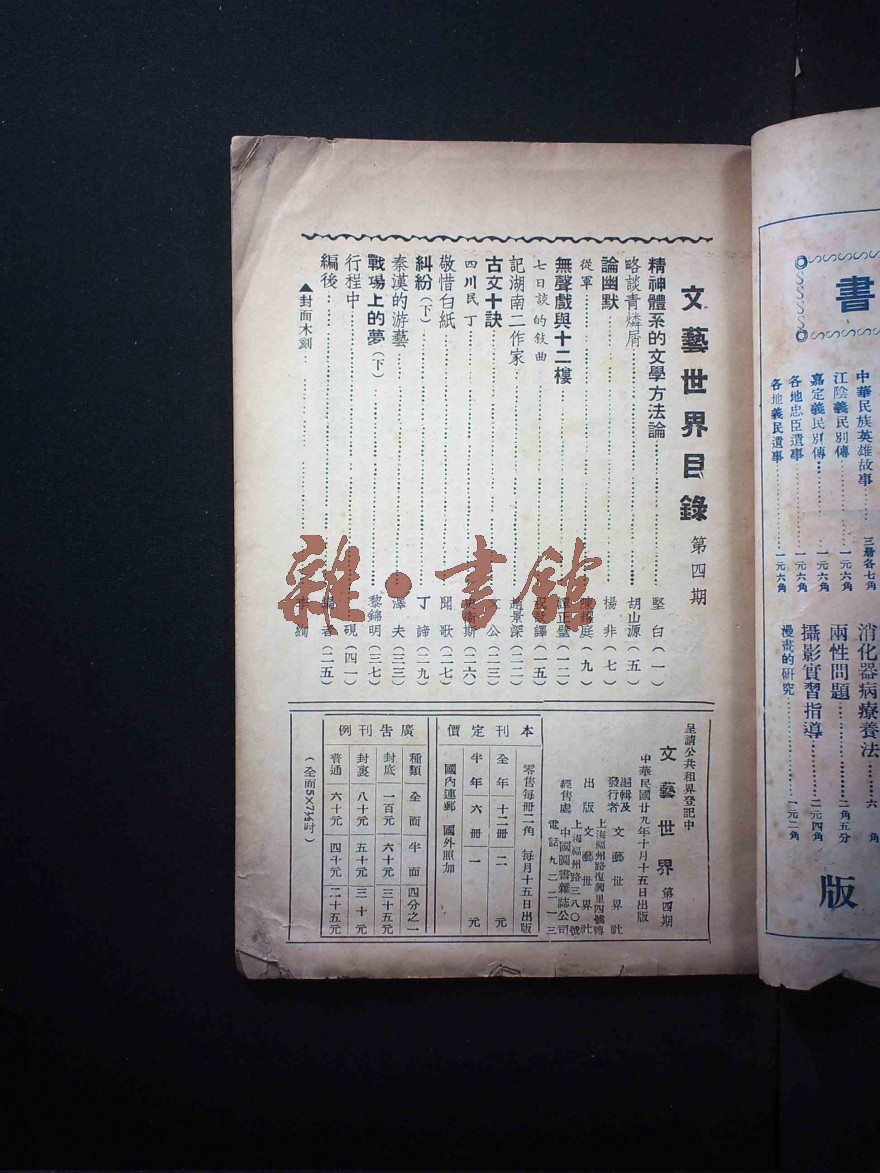 文藝世界目錄 第四期
精神體系的文學方法論 堅白（一）
略談青燐屑 胡山源（五）
論幽默 楊非（七）
從軍 庭（九）
無聲戲與十二樓 譚正璧（一二）
七日談的敍曲 譯（一五）
記湖南二作家 趙景深（二二）
古文十訣 公（二三）
四川民丁 斯（二六）
敬惜白紙 聞歌（二七）
糾紛（下） 丁諦（二九）
秦漢的游藝 澤夫（三三）
戰場上的夢（下） 黎錦明（三七）
行程中 硯（四一）
編後 編者（二五）
▲封面木刻
呈請公共租界登記中
文藝世界 第四期
中華民國廿九年十月十五日出版
編輯及發行者 文藝世界社
上海福州路復興里四號轉
出版 文藝世界社
上海福州路三八〇號
經售處 中國圖書雜誌公司
電話九二二一三
本刊定價
零售每冊二角 每月十五日出版
全年十二冊二元
半年六冊一元
國內連郵 國外照加
廣告刊例
種類 全面 半面 四分之一
封底 一百元 六十元 三十五元
封裏 八十元 五十元 三十元
普通 六十元 四十元 二十五元
（全面5×7½吋）
雜·書館
書
中華民族英雄故事 三册各七角
江陰義民別傳 一元六角
嘉定義民別傳 一元六角
各地忠臣遺事 一元六角
各地義民遺事 一元六角
消化器病療養法 六角
兩性問題 二角五分
攝影實習指導 二元四角
漫畫的研究 一元二角
版